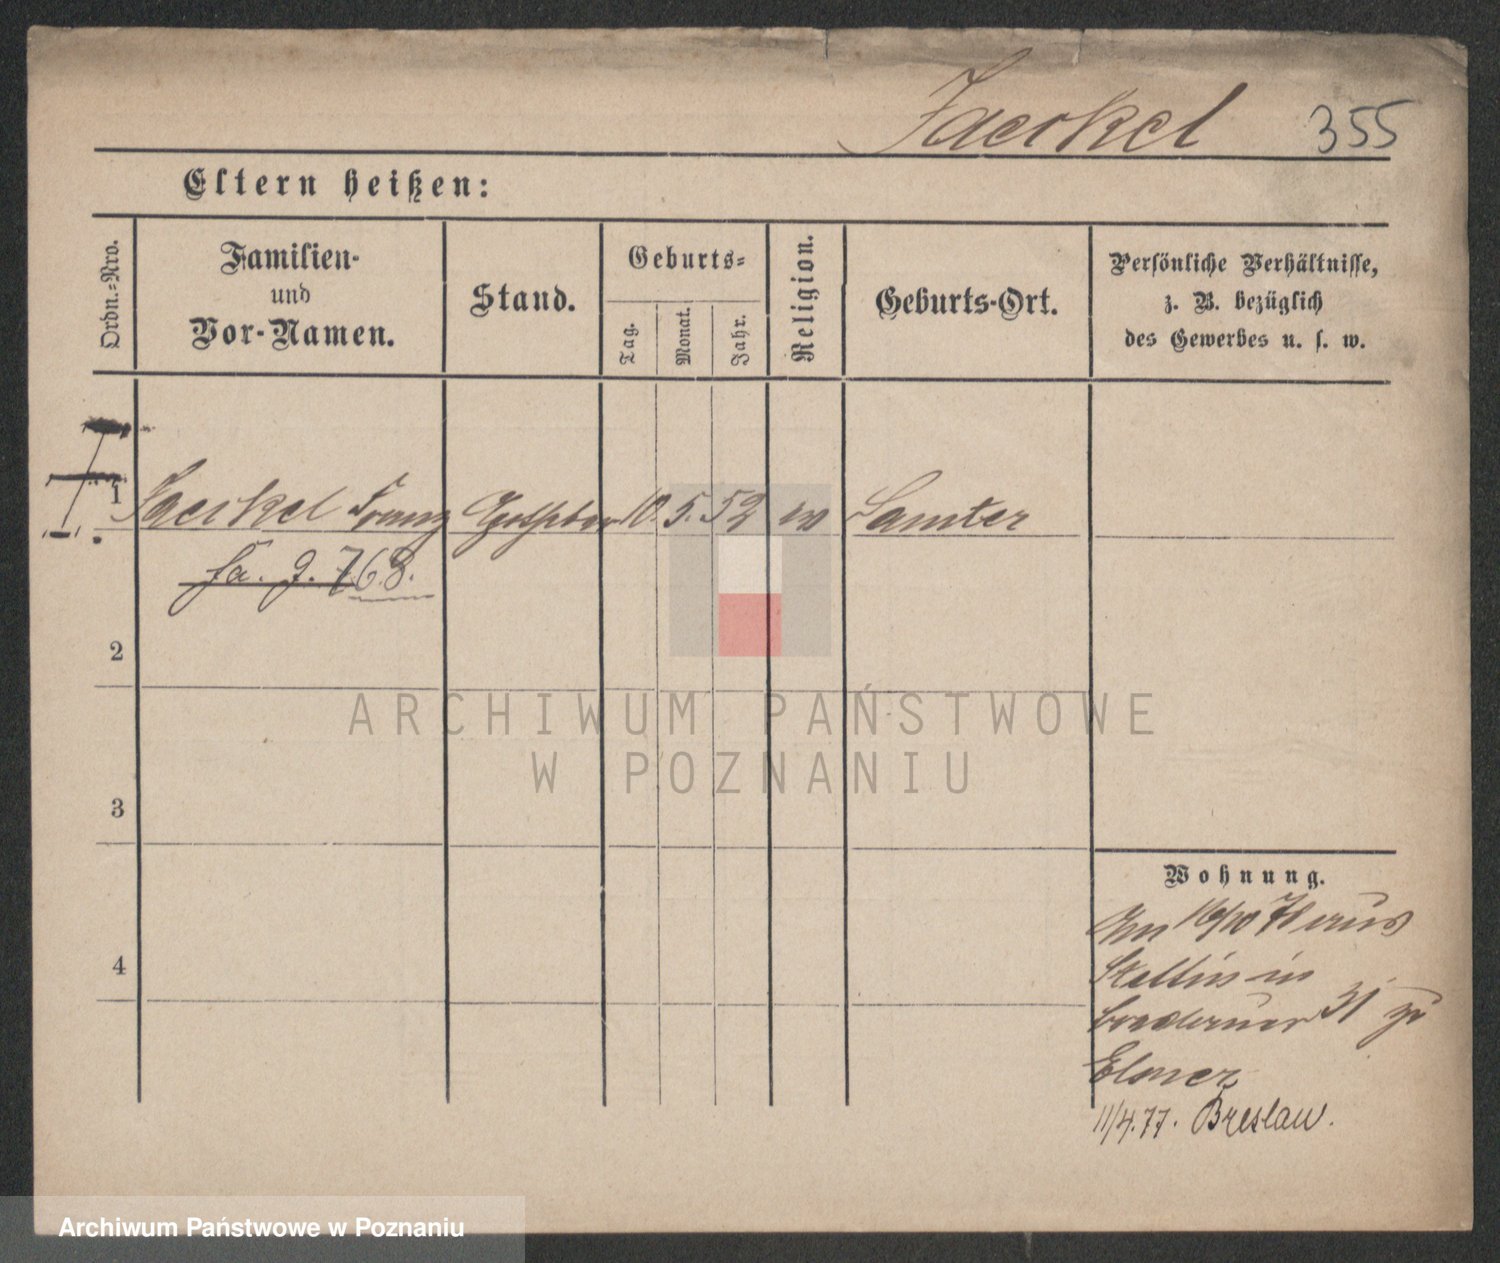 Jaeckel 355
Eltern heißen:
Ordn.-Nro.
Familien-
und
Vor-Namen.
Stand.
Geburts-
Tag.
Monat.
Jahr.
Religion.
Geburts-Ort.
Persönliche Verhältnisse,
z. B. bezüglich
des Gewerbes u. s. w.
1 Jaeckel Franz 10. 5. 52 Samter
fa. g. 768.
2
3
4
Wohnung.
16/10 aus
Stettin in
31 zu
11/4.77. Breslau.
ARCHIWUM PAŃSTWOWE
W POZNANIU
Archiwum Państwowe w Poznaniu